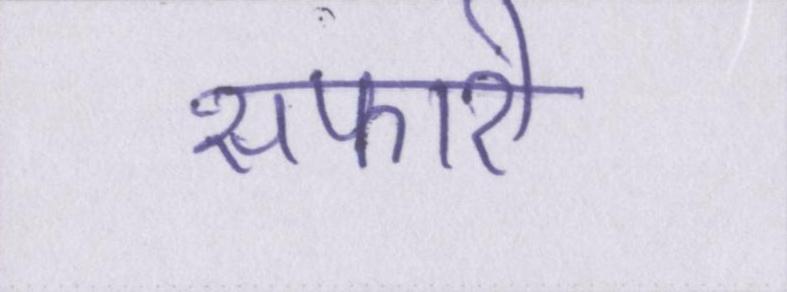 सफारी